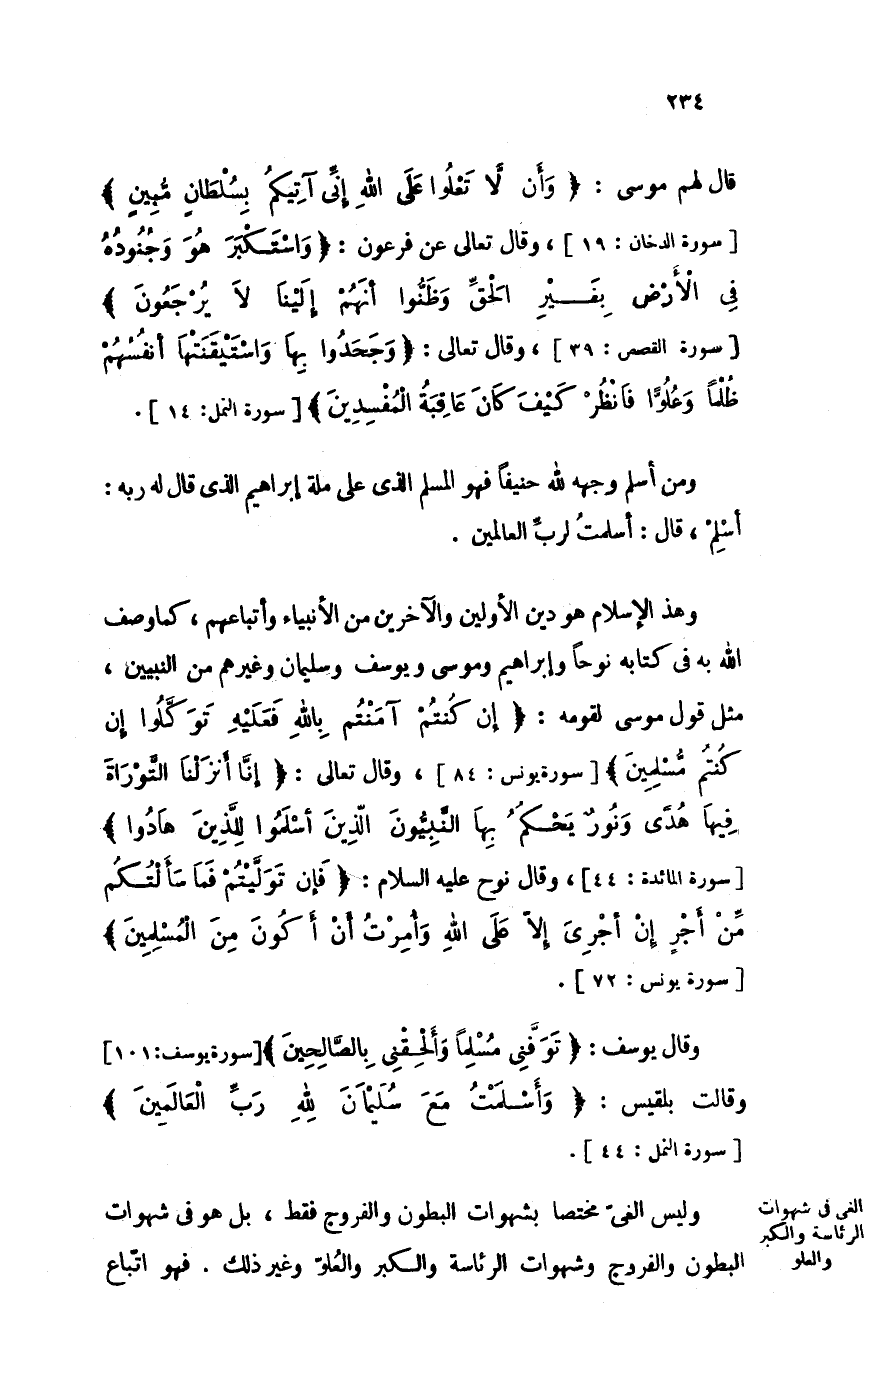 ٢٣٤
قال لهم موسى : ﴿ وَأَن لَّا تَعْلُوا عَلَى اللهِ إِنِّى آتِيكُمُ بِسُلْطَانٍ مُّبِينٍ ﴾
[ سورة الدخان : ١٩ ] ، وقال تعالى عن فرعون : ﴿ وَاسْتَكْبَرَ هُوَ وَجُنُودُهُ
فِي الْأَرْضِ بِغَيْرِ الحَقِّ وَظَنُّوا أنَهُمْ إِلَيْنَا لاَ يُرْجَعُونَ ﴾
[ سورة القصص : ٣٩ ] ، وقال تعالى : ﴿ وَجَحَدُوا بِهَا وَاسْتَيْقَنَتْهَا أنفُسُهُمْ
ظُلْماً وَعُلُوًّا فَانْظُرْ كَيْفَ كَانَ عَاقِبَةُ الْمُفْسِدِينَ ﴾ [ سورة النمل: ١٤ ] .
ومن أسلم وجهه لله حنيفاً فهو المسلم الذى على ملة إبراهيم الذى قال له ربه :
أَسْلِمْ ، قال : أسلمتُ لربِّ العالمين .
وهذ الإسلام هو دين الأولين والآخرين من الأنبياء وأتباعهم ، كما وصف
الله به فى كتابه نوحاً وإبراهيم وموسى ويوسف وسليمان وغيرهم من النبيين ،
مثل قول موسى لقومه : ﴿ إن كُنتُمْ آمَنْتُم بِاللهِ فَعَلَيْهِ تَوَكَّلُوا إن
كُنتُم مُّسْلِمِينَ ﴾ [ سورة يونس : ٨٤ ] ، وقال تعالى : ﴿ إِنَّا أَنزَلْنَا التَّوْرَاةَ
فِيهَا هُدًى وَنُورٌ يَحْكُمُ بِهَا النَّبِيُّونَ الَّذِينَ أسْلَمُوا لِلَّذِينَ هَادُوا ﴾
[ سورة المائدة : ٤٤] ، وقال نوح عليه السلام : ﴿ فَإن تَوَلَّيْتُمْ فَمَا سَأَلْتُكُم
مِّنْ أَجْرٍ إِنْ أجْرِىَ إلاّ عَلَى اللهِ وَأُمِرْتُ أَنْ أَكُونَ مِنَ الْمُسْلِمِينَ ﴾
[ سورة يونس : ٧٢ ] .
وقال يوسف : ﴿ تَوَفَّنِى مُسْلِماً وَأَلْحِقْنِى بِالصَّالِحِينَ ﴾ [سورة يوسف: ١٠١]
وقالت بلقيس : ﴿ وَأَسْلَمْتُ مَعَ سُلَيْمَانَ لِلهِ رَبِّ الْعَالَمِينَ ﴾
[ سورة النمل : ٤٤ ] .
وليس الغىّ مختصا بشهوات البطون والفروج فقط ، بل هو فى شهوات
البطون والفروج وشهوات الرئاسة والكبر والعُلوّ وغير ذلك . فهو اتّباع
الغى فى شهوات
الرئاسة والكبر
والعلو